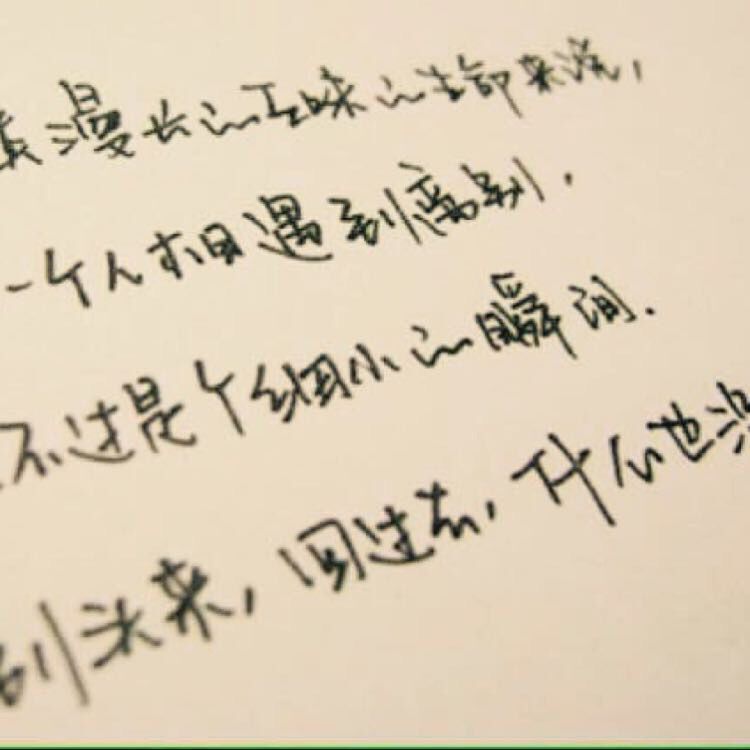 漫长的五味的生命来说，
一个人相遇到离别．
不过是个细小的瞬间．
到头来，回过去，什么也没